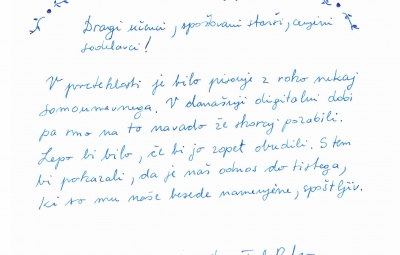 Dragi učenci, spoštovani starši, cenjeni
sodelavci!
V preteklosti je bilo pisanje z roko nekaj
samoumevnega. V današnji digitalni dobi
pa smo na to navado že skoraj pozabili.
Lepo bi bilo, če bi jo zopet obudili. S tem
bi pokazali, da je naš odnos do tistega,
ki so mu naše besede namenjene, spoštljiv.